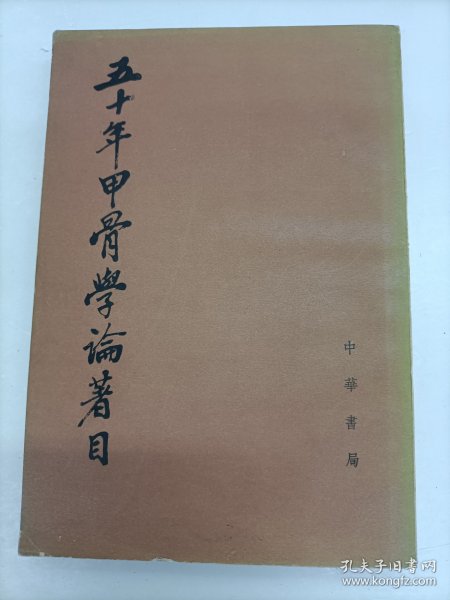 五十年甲骨學論著目
中華書局
孔夫子旧书网
www.kongfz.com